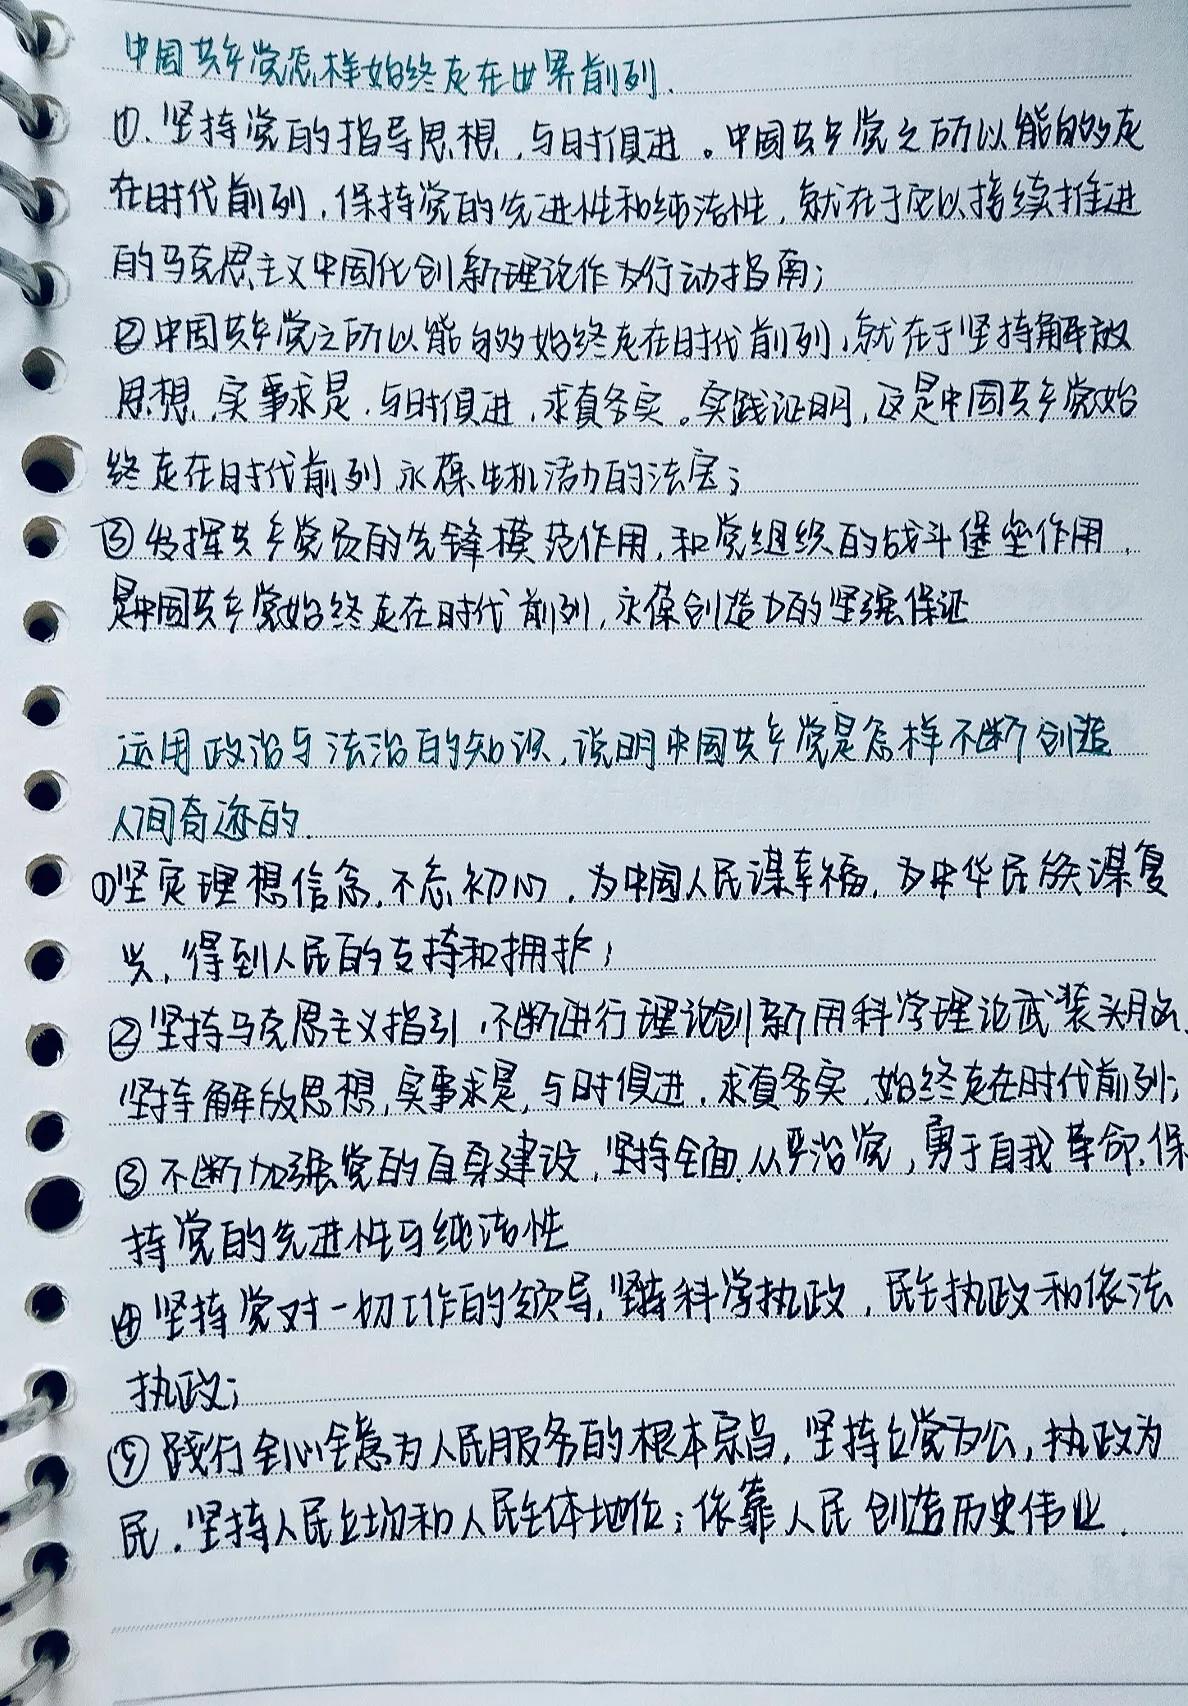 中国共产党怎样始终走在世界前列.
①.坚持党的指导思想,与时俱进。中国共产党之所以能够走
在时代前列,保持党的先进性和纯洁性,就在于它以接续推进
的马克思主义中国化创新理论作为行动指南;
②中国共产党之所以能够始终走在时代前列,就在于坚持解放
思想,实事求是,与时俱进,求真务实。实践证明,这是中国共产党始
终走在时代前列永葆生机活力的法宝;
③发挥共产党员的先锋模范作用,和党组织的战斗堡垒作用,
是中国共产党始终走在时代前列,永葆创造力的坚强保证
运用政治与法治的知识,说明中国共产党是怎样不断创造
人间奇迹的.
①坚定理想信念,不忘初心,为中国人民谋幸福,为中华民族谋复
兴,得到人民的支持和拥护;
②坚持马克思主义指引,不断进行理论创新用科学理论武装头脑,
坚持解放思想,实事求是,与时俱进,求真务实,始终走在时代前列;
③不断加强党的自身建设,坚持全面从严治党,勇于自我革命,保
持党的先进性与纯洁性
④坚持党对一切工作的领导,坚持科学执政,民主执政和依法
执政;
⑤践行全心全意为人民服务的根本宗旨,坚持立党为公,执政为
民,坚持人民立场和人民主体地位;依靠人民创造历史伟业.